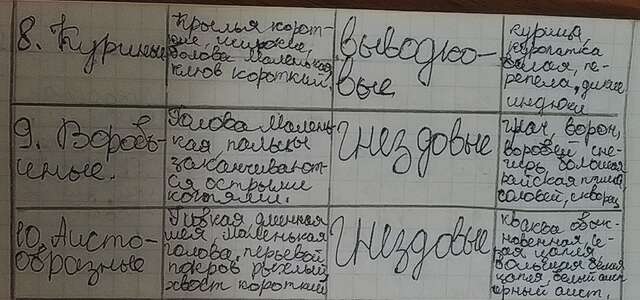 8. Куриные
Крылья корот-
кие, широкие,
голова маленькая,
клюв короткий.
выводко-
вые
курица,
куропатка
белая, пе-
репела, дикие
индюки
9. Воробь-
иные.
Голова малень-
кая, пальцы
заканчивают-
ся острыми
когтями.
гнездовые
грач, ворон,
воробей, сне-
гирь, большая
райская птица,
соловей, скворец
10. Аисто-
образные
Гибкая длинная
шея, маленькая
голова, перьевой
покров рыхлый
хвост короткий
гнездовые
кваква обык-
новенная, се-
рая цапля
большая белая
цапля, белый аист
чёрный аист,